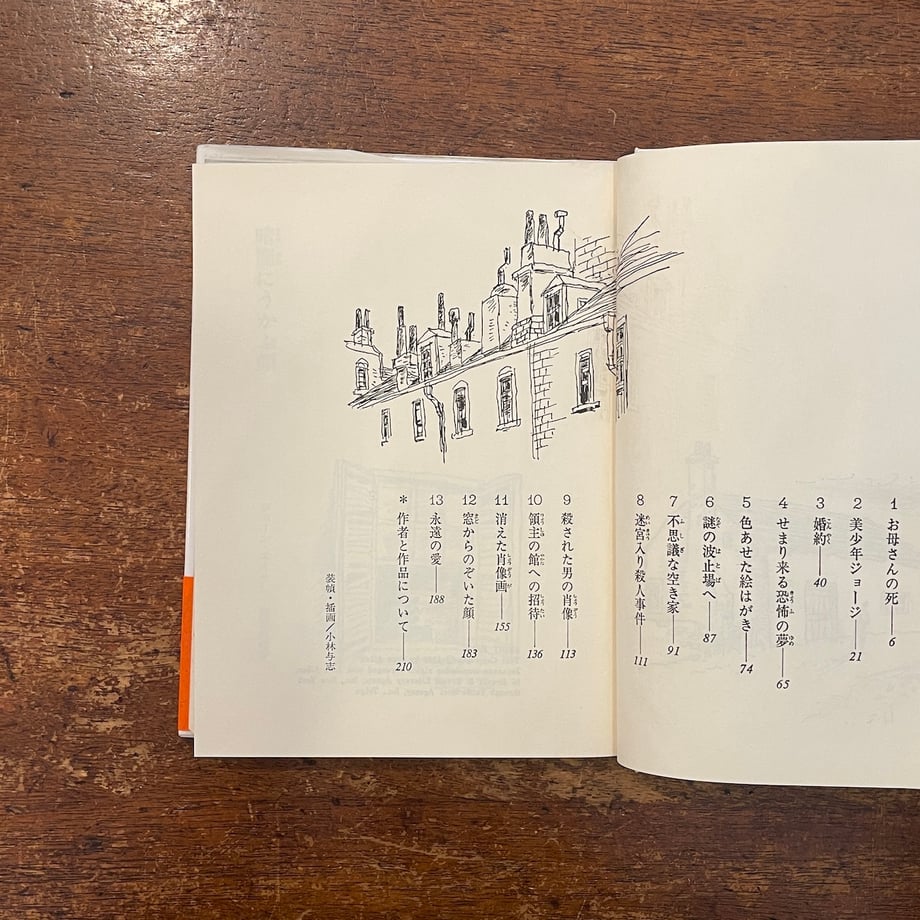 1 お母さんの死──6
2 美少年ジョージ──21
3 婚約──40
4 せまり来る恐怖の夢──65
5 色あせた絵はがき──74
6 謎の波止場へ──87
7 不思議な空き家──91
8 迷宮入り殺人事件──111
9 殺された男の肖像──113
10 領主の館への招待──136
11 消えた肖像画──155
12 窓からのぞいた顔──183
13 永遠の愛──188
* 作者と作品について──210
装幀・插画/小林与志